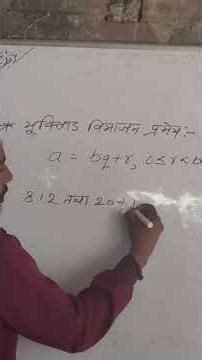 * यूक्लिड विभाजन प्रमेय :-
a = bq+r, 0≤r<b
812 तथा 20